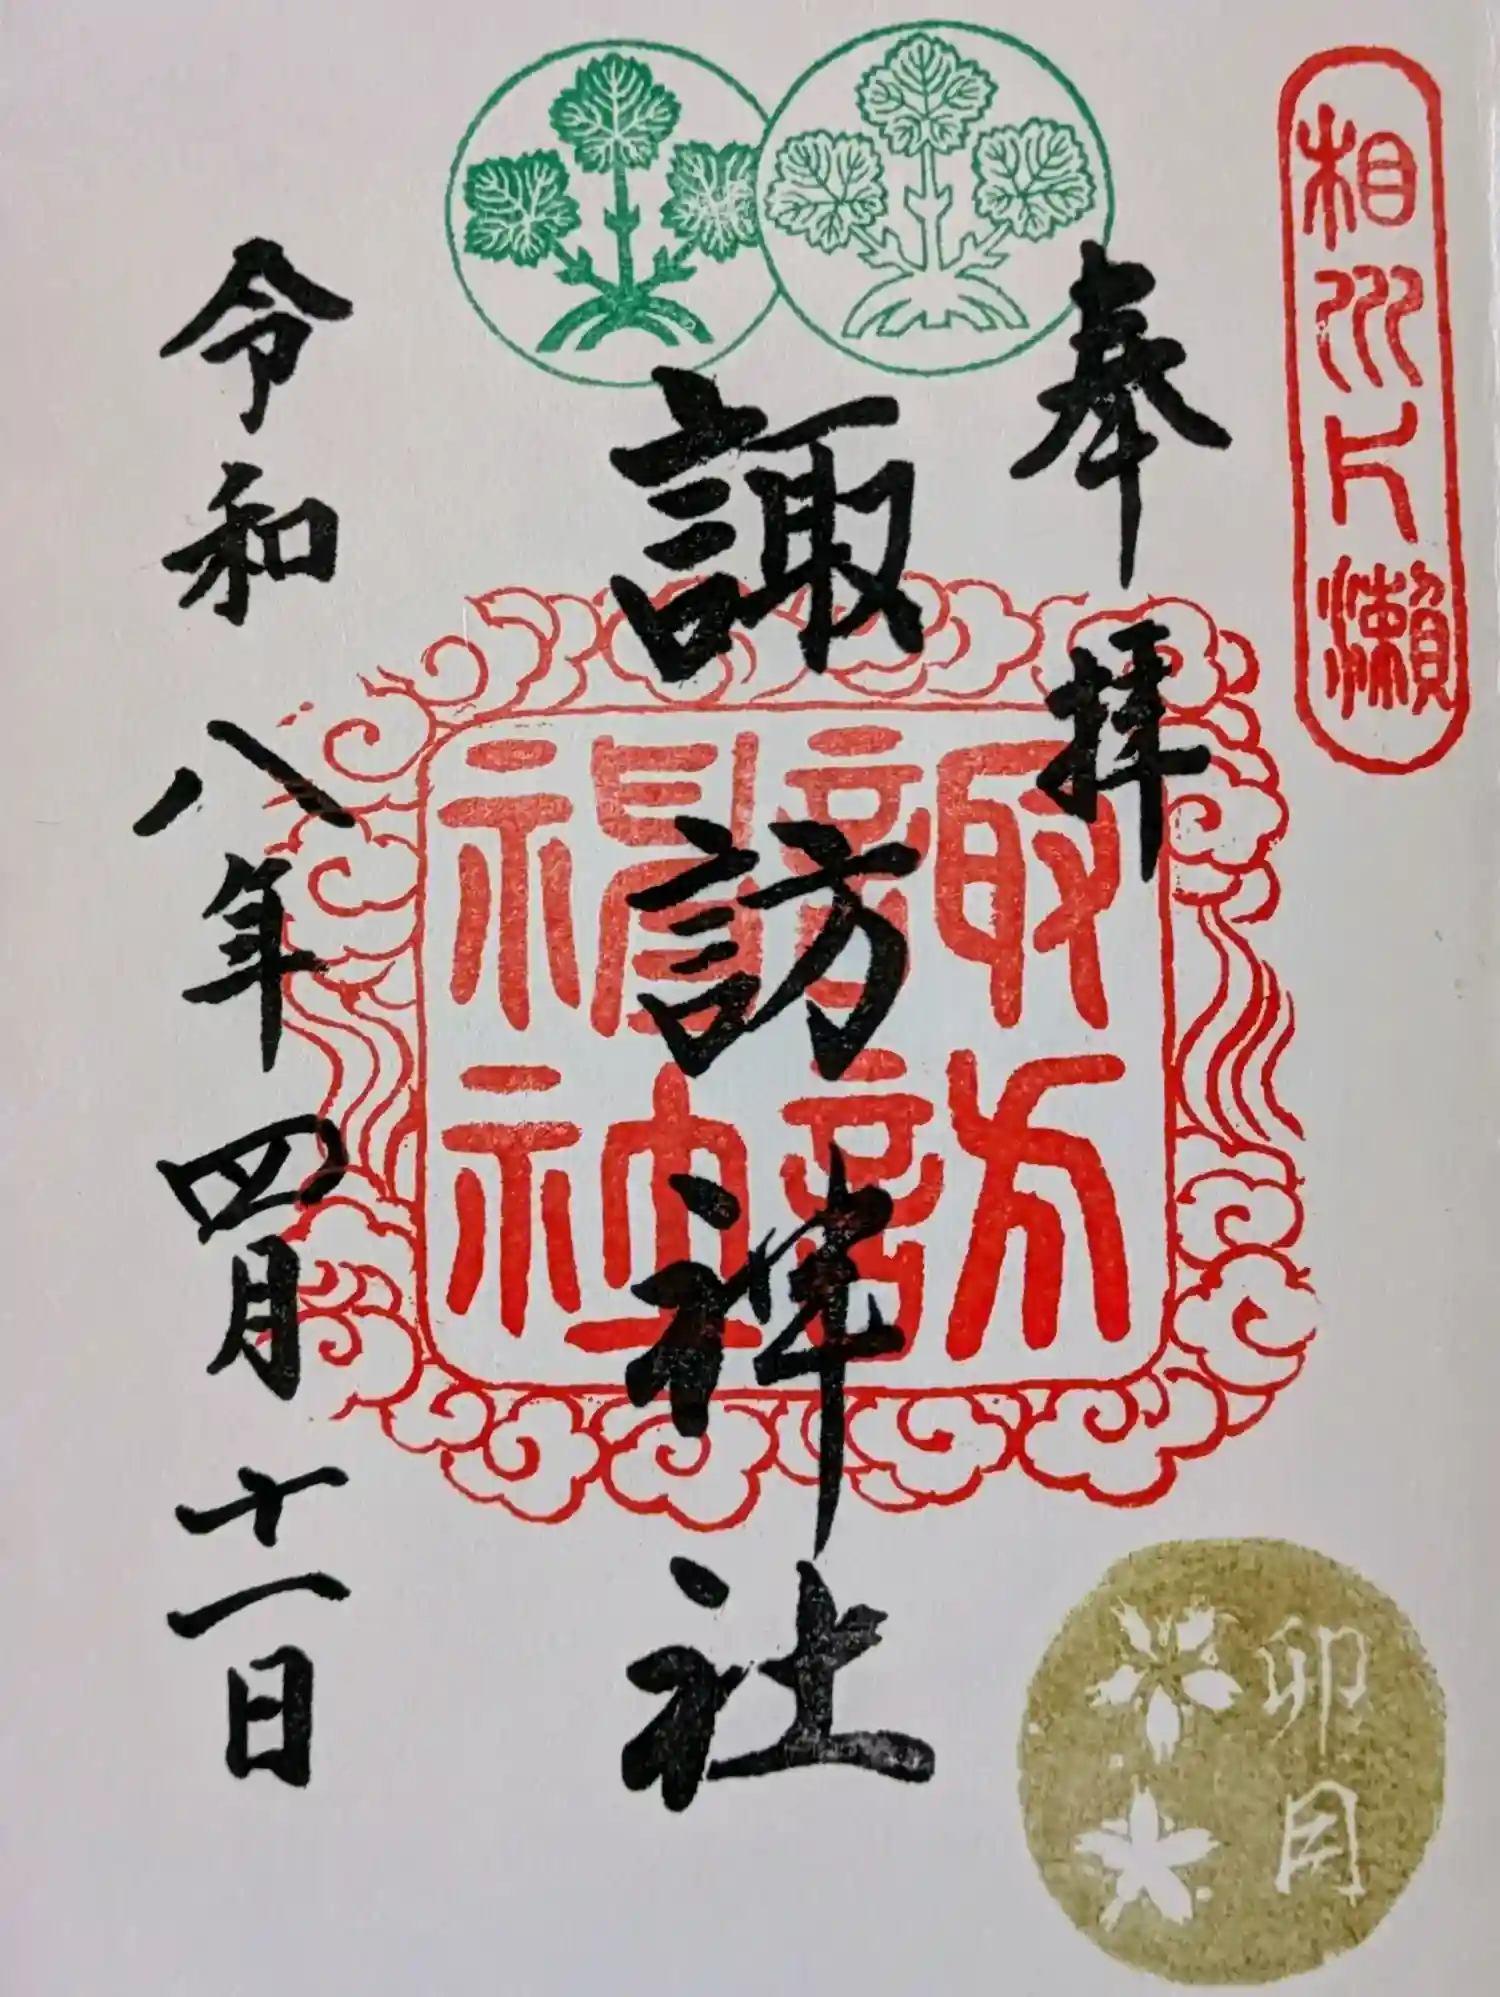 相州片瀬
奉拝
諏訪神社
諏訪
神社
令和八年四月十一日
卯月